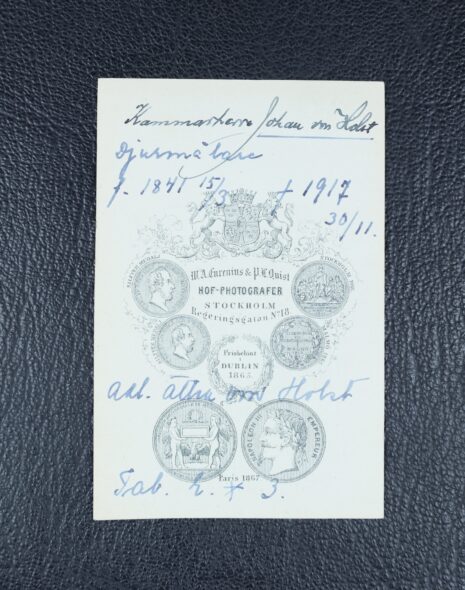 Kammarherre Johan von Holst
Djurmålare
f. 1841 15/3 † 1917
30/11.
W. A. Eurenius & P. L. Quist
HOF-PHOTOGRAFER
STOCKHOLM
Regeringsgatan No 18.
Prisbelönt
i
DUBLIN
1865
adl. ätten von Holst
NAPOLEON III EMPEREUR
Paris 1867
Tab. 2. * 3.